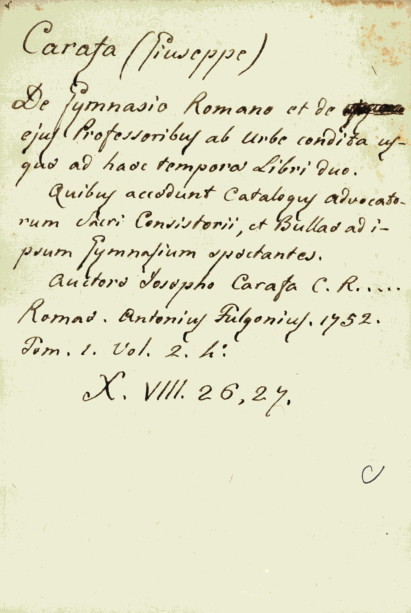 Carafa (Giuseppe)
De Gymnasio Romano et de
ejus Professoribus ab Urbe condita us-
que ad haec tempora Libri duo.
Quibus accedunt Catalogus advocato-
rum sacri Consistorii, et Bullae ad i-
psum Gymnasium spectantes.
Auctore Josepho Carafa C. R.....
Romae. Antonius Fulgonius. 1752.
Tom. 1. Vol. 2. 4:
X. VIII. 26, 27.
C